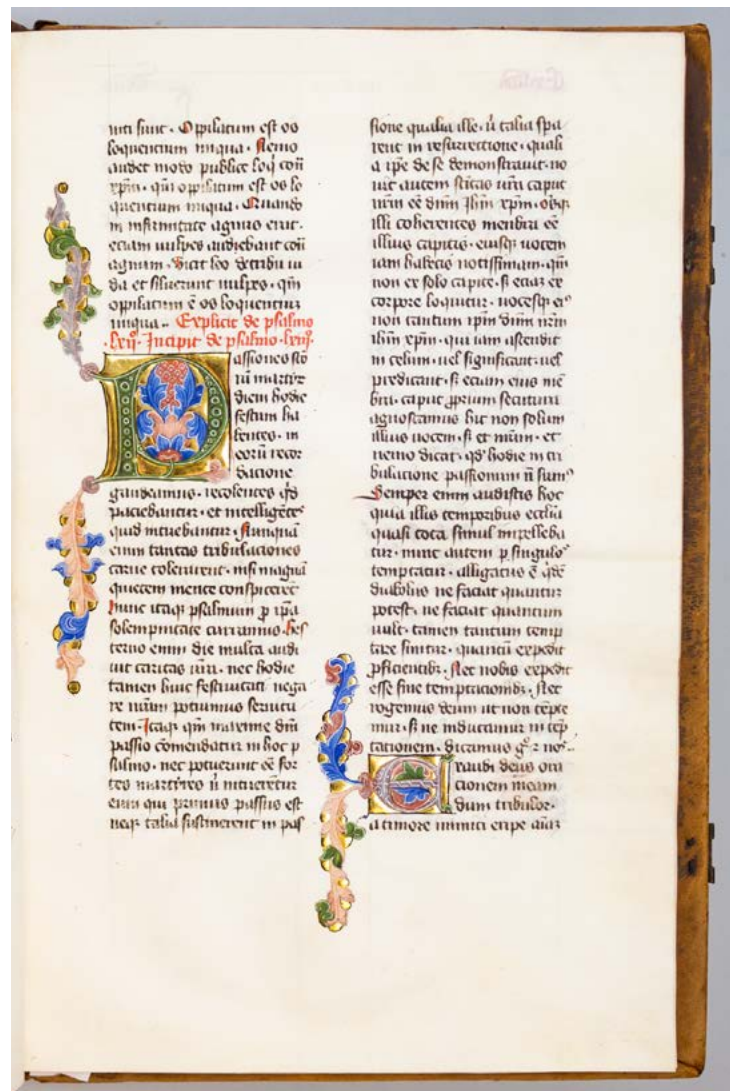 uiti sunt · Oppilatum est os
loquentium iniqua · Nemo
audet modo publice loq̄ con
xp̄m · qm̄ oppilatum est os lo
quentium iniqua · Quando
in infirmitate agnus erat ·
eciam uulpes audiebant con
agnum · Vicit leo de tribu iu
da et siluerunt uulpes · qm̄
oppilatum ē os loquentium
iniqua · Explicit de psalmo
lxij° · Incipit de psalmo lxiij°
Passiones sc̄o
rū martyr̄
diem hodie
festum ha
bentes · in
eorū recor
dacione
gaudeamus · recolentes qd̄
paciebantur · et intelligētes
quid intuebantur · Nunquā
enim tantas tribulaciones
carne tolerarent · nisi magnā
quietem mente conspicerēt
hunc itaqꝫ psalmum p̄ ip̄a
solempnitate curramus · Hes
terno enim die multa audi
uit caritas ur̄a · nec hodie
tamen huic festiuitati nega
re nr̄am potuimus seruitu
tem · Itaqꝫ qm̄ maxime dn̄i
passio comendatur in hoc p
salmo · nec potuerunt eē for
tes martyres ñ intuerētur
eum qui primus passus est
neqꝫ talia sustinerent in pas
sione qualia ille · ñ talia spa
rent in resurrectione · quali
a ip̄e de se demonstrauit · no
uit autem sc̄itas ur̄a caput
nr̄m eē dn̄m ih̄m xp̄m · om̄sqꝫ
illi coherentes membra eē
illius capitis · eiusqꝫ uocem
iam habetis notissimam · qm̄
non ex solo capite · s̄ eciam ex
corpore loquitur · uocesqꝫ ei⁹
non tantum ip̄m dn̄m nr̄m
ih̄m xp̄m · qui iam ascendit
in celum · uel significant · uel
predicant · s̄ eciam eius mē
bra · caput p̄prium secutura
agnoscamus hic non solum
illius uocem · s̄ et nr̄am · et
nemo dicat · qd̄ hodie in tri
bulacione passionum ñ sum⁹
Semper enim audistis hoc
quia illis temporibus eccl̄ia
quasi tota simul impelleba
tur · nunc autem p̄ singulos
temptatur · alligatus ē qd̄ē
diabolus ne faciat quantum
potest · ne faciat quantum
uult · tamen tantum temp
tare sinitur · quantū expedit
p̄ficientibꝫ · Nec nobis expedit
esse sine temptacionibꝫ · Nec
rogemus deum ut non tēpte
mur · s̄ ne inducamur in tēp
tationem · dicamus g° ⁊ nos ·
Exaudi deus ora
cionem meam
dum tribulor ·
a timore inimici eripe aīaꝫ